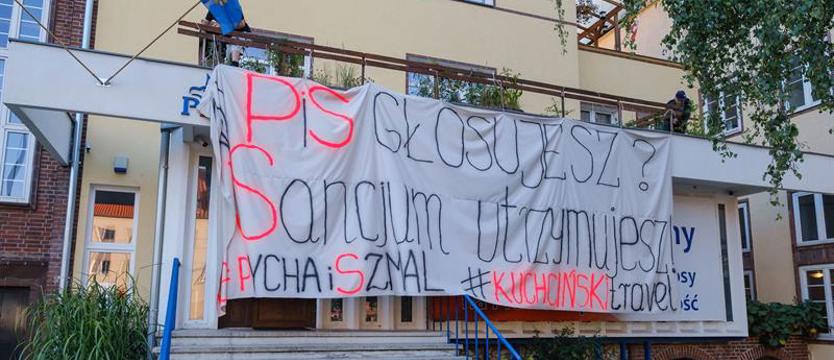 PiS GŁOSUJESZ?
Sancjum utrzymujesz!
#PYCHAiSZMAL #KUCHCIŃSKItravel
ny
osy
ość